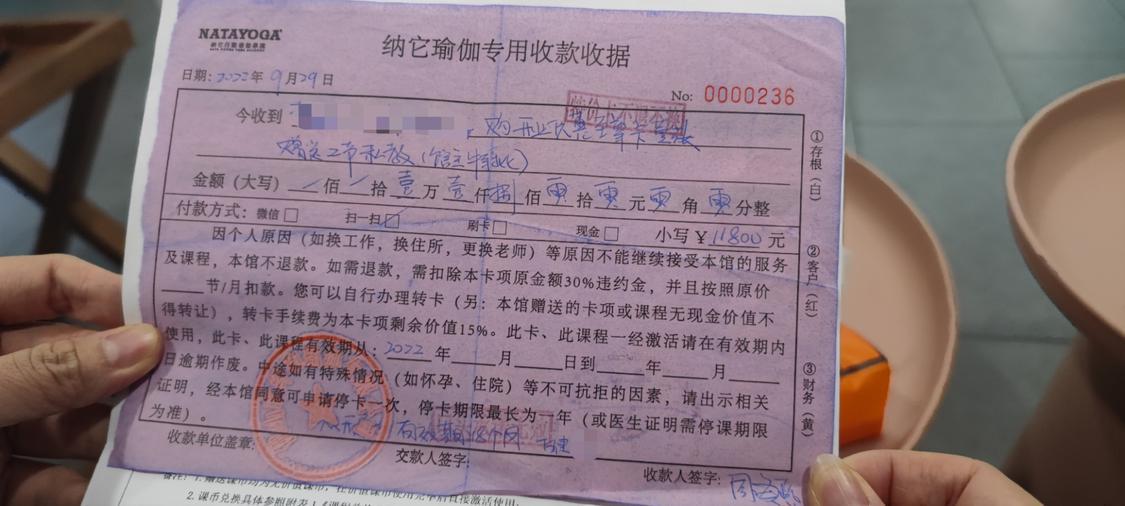 NATAYOGA
纳它瑜伽专用收款收据
日期:2022年9月29日
No: 0000236
今收到
特价卡不退不换
赠送2节私教(馆主特批)
金额(大写) / 佰 / 拾 壹 万 壹 仟 捌 佰 零 拾 零 元 零 角 零 分整
付款方式: 微信□ 扫一扫□ 刷卡□ 现金□ 小写¥11800元
因个人原因(如换工作,换住所,更换老师)等原因不能继续接受本馆的服务
及课程,本馆不退款。如需退款,需扣除本卡项原金额30%违约金,并且按照原价
____节/月扣款。您可以自行办理转卡(另:本馆赠送的卡项或课程无现金价值不
得转让),转卡手续费为本卡项剩余价值15%。此卡、此课程一经激活请在有效期内
使用,此卡、此课程有效期从:2022年____月____日到____年____月____
日逾期作废。中途如有特殊情况(如怀孕、住院)等不可抗拒的因素,请出示相关
证明,经本馆同意可申请停卡一次,停卡期限最长为一年(或医生证明需停课期限
为准)。
有效期18个月
收款单位盖章:
交款人签字:
收款人签字:
①存根(白)
②客户(红)
③财务(黄)
2. 课币兑换具体参照附表1